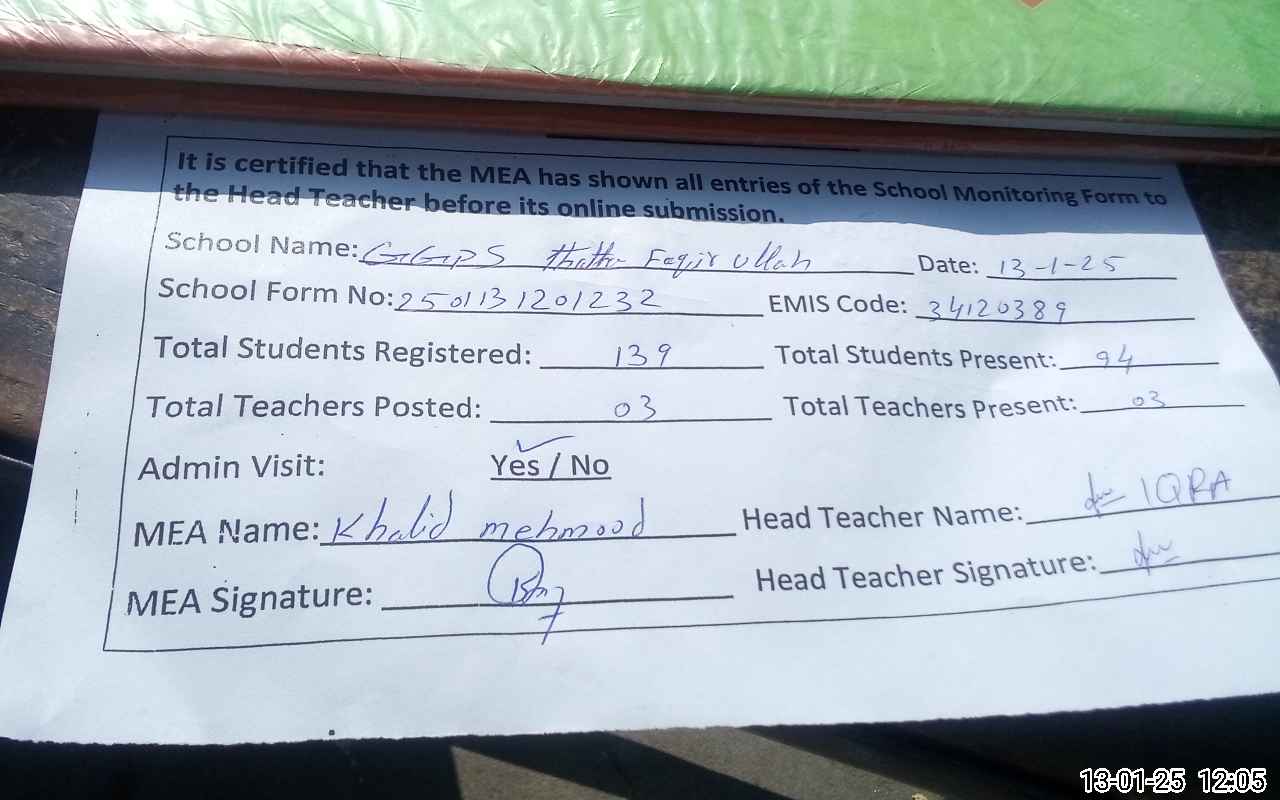 It is certified that the MEA has shown all entries of the School Monitoring Form to
the Head Teacher before its online submission.
School Name: GGPS Thatha Faqir Ullah Date: 13-1-25
School Form No: 2501131201232 EMIS Code: 34120389
Total Students Registered: 139 Total Students Present: 94
Total Teachers Posted: 03 Total Teachers Present: 03
Admin Visit: Yes / No
MEA Name: Khalid mehmood Head Teacher Name: IQRA
MEA Signature: Head Teacher Signature:
13-01-25 12:05